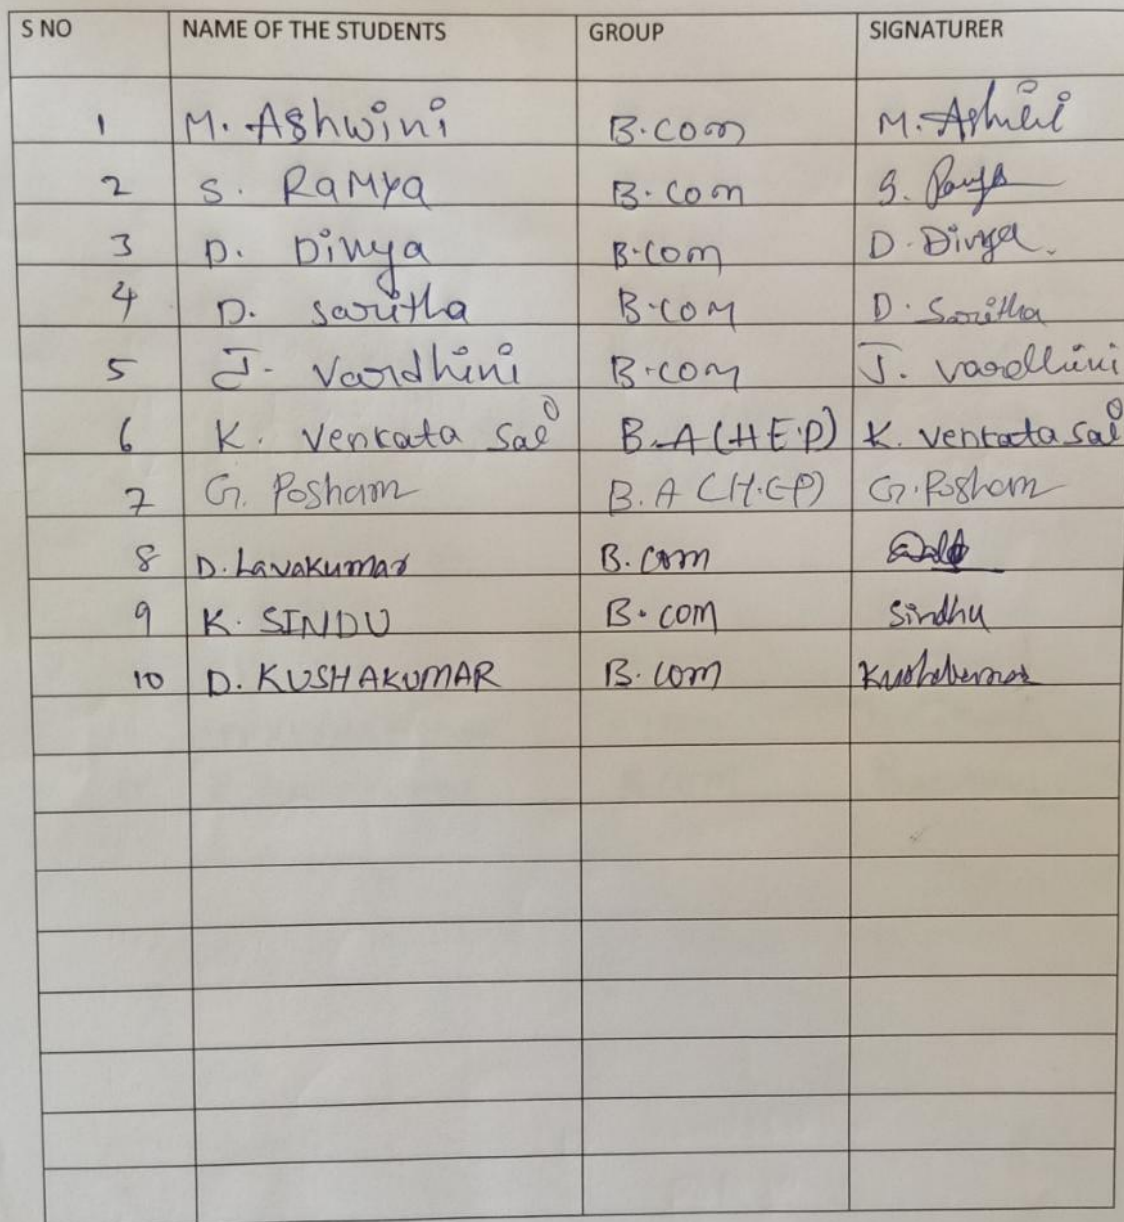 S NO NAME OF THE STUDENTS GROUP SIGNATURER
1 M. Ashwini B.com M.
2 S. RaMya B.com S.
3 D. Divya B.com D. Divya.
4 D. saritha B.com D. Saritha
5 J. Vardhini B.com J. vardhini
6 K. Venkata Sai B.A (H E.P) K. Venkata Sai
7 G. Posham B.A (H.E.P) G. Posham
8 D. Lavakumar B.com
9 K. SINDU B.com Sindhu
10 D. KUSHAKUMAR B.com